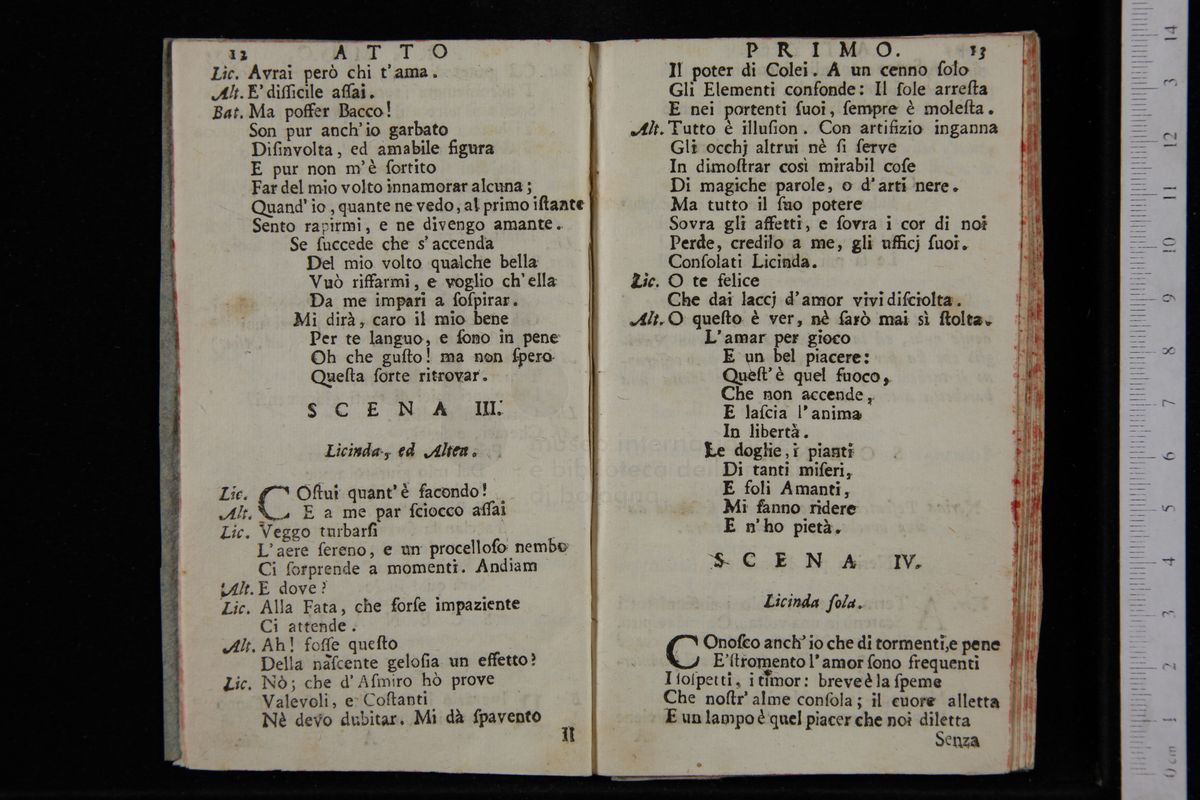 12 ATTO
Lic. Avrai però chi t'ama.
Alt. E' difficile aſſai.
Bat. Ma poſſer Bacco!
Son pur anch'io garbato
Diſinvolta, ed amabile figura
E pur non m'è ſortito
Far del mio volto innamorar alcuna;
Quand'io, quante ne vedo, al primo iſtante
Sento rapirmi, e ne divengo amante.
Se ſuccede che s'accenda
Del mio volto qualche bella
Vuò riffarmi, e voglio ch'ella
Da me impari a ſoſpirar.
Mi dirà, caro il mio bene
Per te languo, e ſono in pene
Oh che guſto! ma non ſpero
Queſta ſorte ritrovar.
SCENA III.
Licinda, ed Alten.
Lic. COſtui quant'è facondo!
Alt. E a me par ſciocco aſſai
Lic. Veggo turbarſi
L'aere ſereno, e un procelloſo nembo
Ci ſorprende a momenti. Andiam
Alt. E dove?
Lic. Alla Fata, che forſe impaziente
Ci attende.
Alt. Ah! foſſe queſto
Della naſcente geloſia un effetto?
Lic. Nò; che d'Aſmiro hò prove
Valevoli, e Coſtanti
Nè devo dubitar. Mi dà ſpavento
Il
PRIMO. 13
Il poter di Colei. A un cenno ſolo
Gli Elementi confonde: Il ſole arreſta
E nei portenti ſuoi, ſempre è moleſta.
Alt. Tutto è illuſion. Con artifizio inganna
Gli occhj altrui nè ſi ſerve
In dimoſtrar così mirabil coſe
Di magiche parole, o d'arti nere.
Ma tutto il ſuo potere
Sovra gli affetti, e ſovra i cor di noi
Perde, credilo a me, gli ufficj ſuoi.
Conſolati Licinda.
Lic. O te felice
Che dai laccj d'amor vivi diſciolta.
Alt. O queſto è ver, nè ſarò mai sì ſtolta.
L'amar per gioco
E un bel piacere:
Queſt'è quel fuoco,
Che non accende,
E laſcia l'anima
In libertà.
Le doglie, i pianti
Di tanti miſeri,
E foli Amanti,
Mi fanno ridere
E n'ho pietà.
SCENA IV.
Licinda ſola.
COnoſco anch'io che di tormenti, e pene
E' ſtromento l'amor ſono frequenti
I ſoſpetti, i timor: breve è la ſpeme
Che noſtr'alme conſola; il cuore alletta
E un lampo è quel piacer che noi diletta
Senza
museo interna
e biblioteca del
di bologna
0 cm 1 2 3 4 5 6 7 8 9 10 11 12 13 14